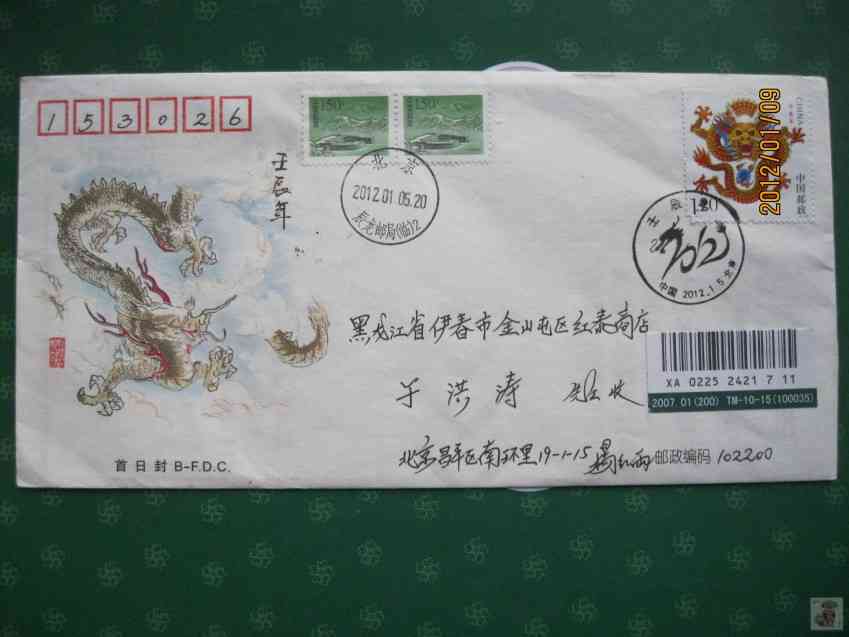 153026
150
150
CHINA
中国邮政
120
2012/01/09
壬辰年
北京
2012.01.05.20
辰龙邮局(临)2
壬辰
2012
中国 2012.1.5 北京
黑龙江省伊春市金山屯区红泰商店
于洪涛 先生收
XA 0225 2421 7 11
2007.01(200) TM-10-15(100035)
北京昌平区南环里19-1-15
邮政编码 102200
首日封 B-F.D.C.